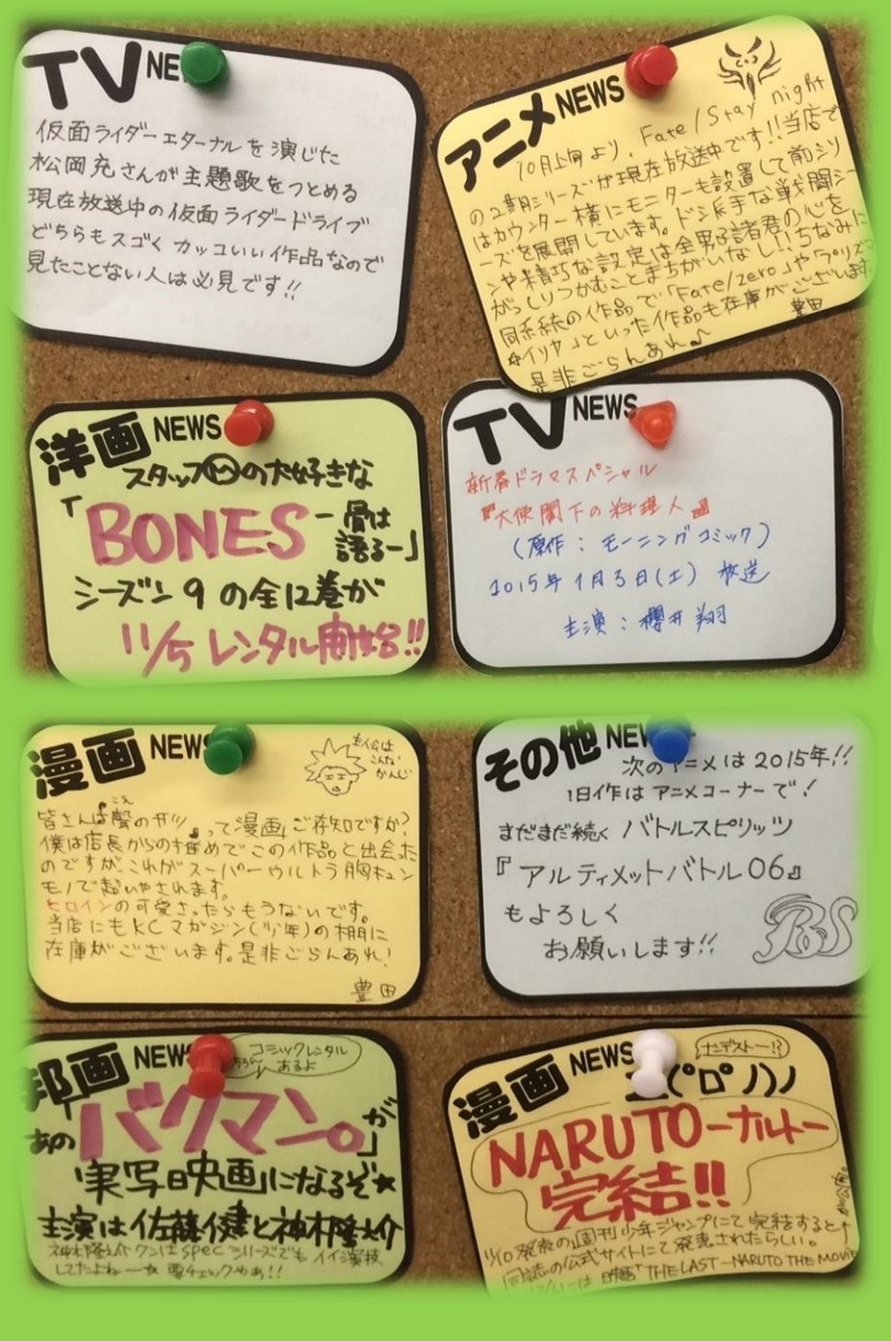 TV NE
仮面ライダーエターナルを演じた
松岡充さんが主題歌をつとめる
現在放送中の仮面ライダードライブ
どちらもスゴくカッコいい作品なので
見たことない人は必見です!!
アニメNEWS
10月上旬より、Fate/Stay night
の2期シリーズが現在放送中です!!当店で
はカウンター横にモニターも設置して前シリ
ーズを展開しています。ド派手な戦闘シー
ンや精巧な設定は全男子諸君の心を
がっしりつかむことまちがいなし!!ちなみに
同系統の作品で「Fate/zero」や「プリズマ
☆イリヤ」といった作品も在庫がございます
是非ごらんあれ♪
豊田
洋画 NEWS
スタッフの大好きな
「BONES-骨は
語る-」
シーズン9の全12巻が
11/5レンタル開始!!
TV NEWS
新春ドラマスペシャル
『大使閣下の料理人』
(原作:モーニングコミック)
2015年1月3日(土) 放送
主演:櫻井翔
漫画 NEWS
主人公は
こんな
かんじ
こえ
皆さんは『聲のカタチ』って漫画ご存知ですか?
僕は店長からの推めでこの作品と出会った
のですが、これがスーパーウルトラ胸キュン
モノで超いやされます。
ヒロインの可愛さったらもうないです。
当店にもKCマガジン(少年)の棚に
在庫がございます。是非ごらんあれ!
豊田
その他 NEW
次のアニメは2015年!!
旧作はアニメコーナーで!
まだまだ続く バトルスピリッツ
『アルティメットバトル06』
もよろしく
お願いします!!
BS
邦画 NEWS
コミックレンタル
あるよ
あの「バクマン。」が
実写映画になるぞ☆
主演は佐藤健と神木隆之介
神木隆之介クンはspecシリーズでもイイ演技
してたよねー☆ 要チェックやぁ!!
漫画 NEWS
NARUTO-ナルト-
完結!!
11/10発売の週刊少年ジャンプにて完結すると
同誌の公式サイトにて発表されたらしい。
映画「THE LAST-NARUTO THE MOVIE